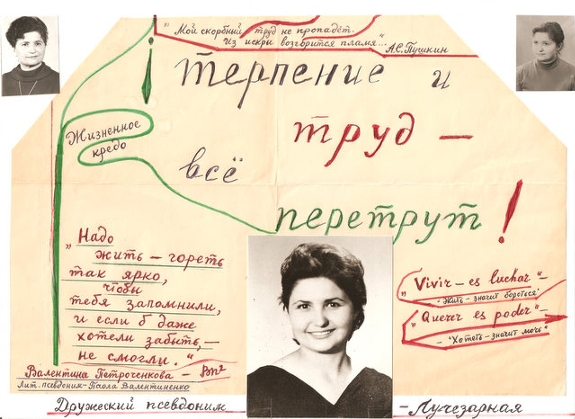 „Мой скорбный труд не пропадёт.
Из искры возгорится пламя...“
А.С.Пушкин
Терпение и
труд —
всё
перетрут!
Жизненное
кредо
„Надо
жить – гореть
так ярко,
чтобы
тебя запомнили,
и если б даже
хотели забыть, –
не смогли.“
Валентина Петроченкова –
Лит. псевдоним – Паола Валентиненко
„Vivir – es luchar“ –
„Жить – значит бороться“
„Querer es poder“ –
– „Хотеть – значит мочь“
Дружеский псевдоним – Лучезарная